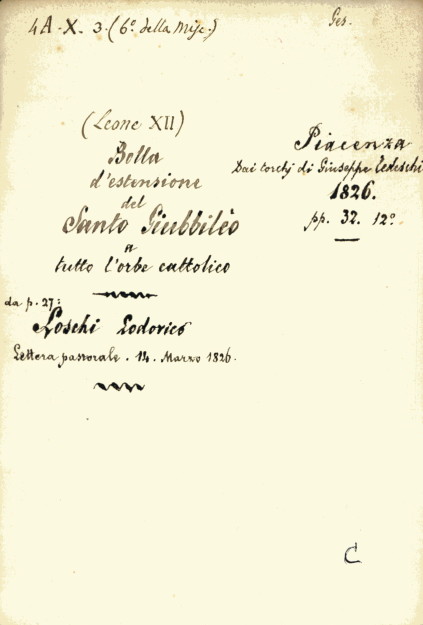 4A-X. 3. (6º. della Misc.)
Ges.
(Leone XII)
Bolla
d'estensione
del
Santo Giubbilèo
a
tutto l'orbe cattolico
da p. 27:
Loschi Lodovico
Lettera pastorale. 14. Marzo 1826.
Piacenza
Dai torchj di Giuseppe Tedeschi
1826.
pp. 32. 12º
C